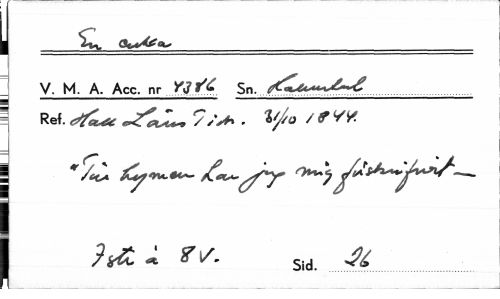 En enka
V. M. A. Acc. nr 4386 Sn. Halmstad
Ref. Hall Läns Tidn. 31/10 1844.
"Till hymen har jag mig förskrifvit —
7 str à 8 V. Sid. 26